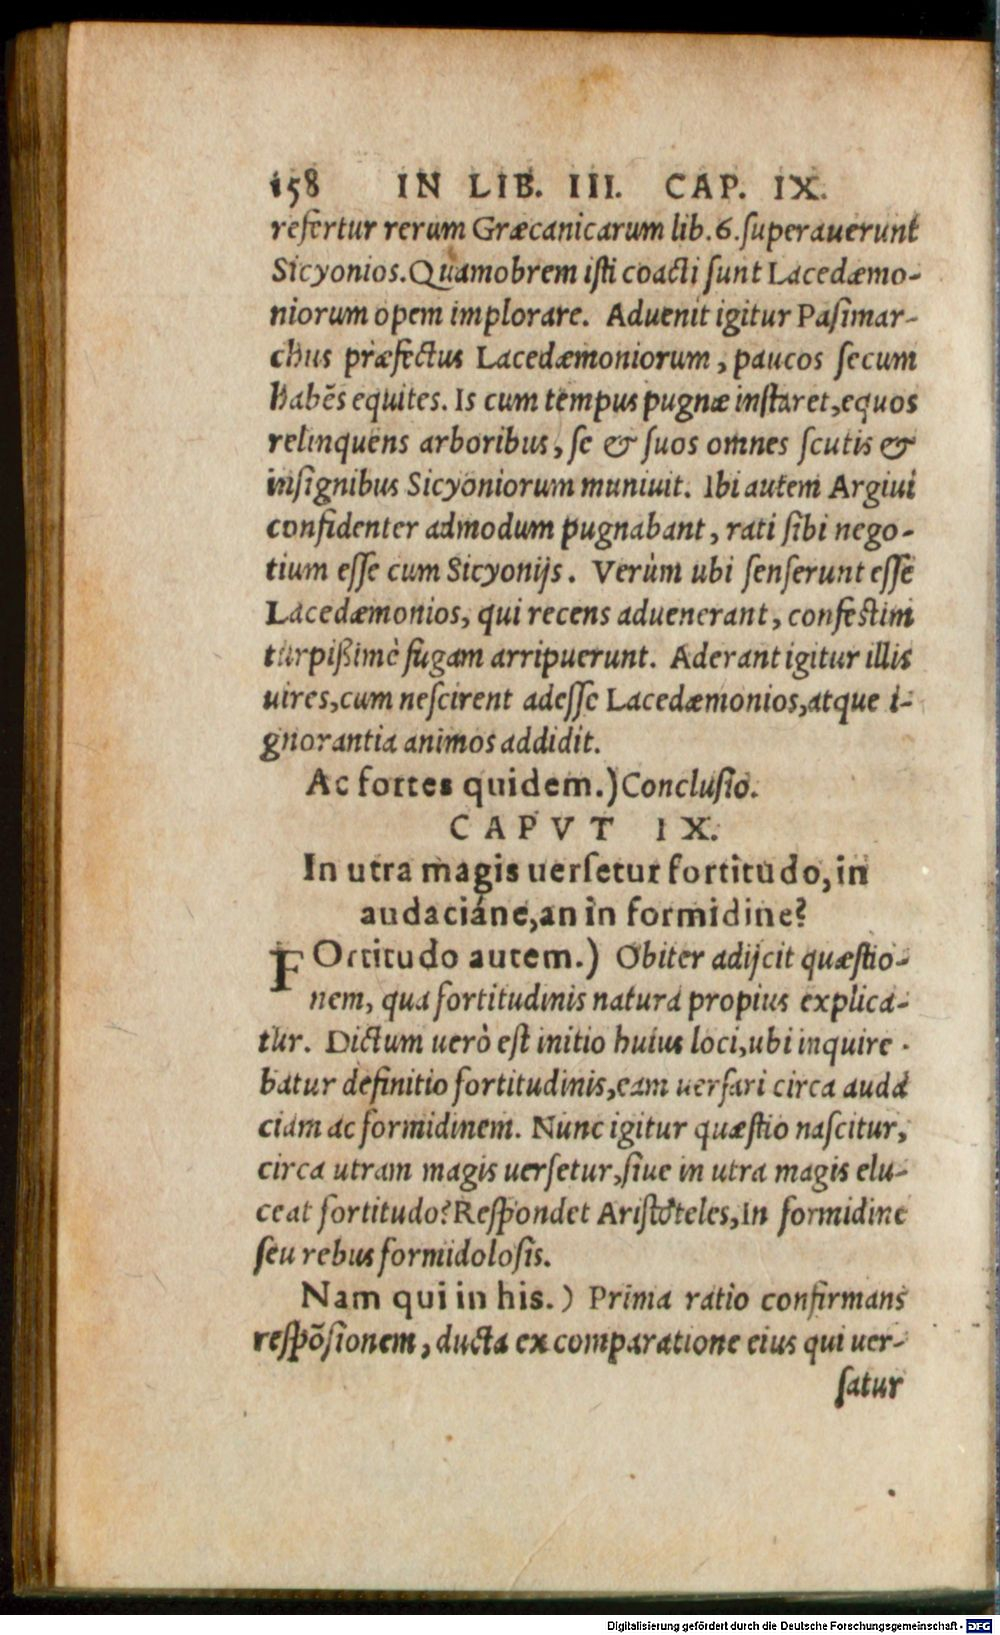 158 IN LIB. III. CAP. IX.
refertur rerum Græcanicarum lib. 6. ſuperauerunt
Sicyonios. Quamobrem iſti coacti ſunt Lacedæmo-
niorum opem implorare. Aduenit igitur Paſimar-
chus præfectus Lacedæmoniorum, paucos ſecum
habẽs equites. Is cum tempus pugnæ inſtaret, equos
relinquens arboribus, ſe & ſuos omnes ſcutis &
inſignibus Sicyoniorum muniuit. Ibi autem Argiui
confidenter admodum pugnabant, rati ſibi nego-
tium eſſe cum Sicyonijs. Verùm ubi ſenſerunt eſſe
Lacedæmonios, qui recens aduenerant, confeſtim
turpißimè fugam arripuerunt. Aderant igitur illis
uires, cum neſcirent adeſſe Lacedæmonios, atque i-
gnorantia animos addidit.
Ac fortes quidem.) Concluſio.
CAPVT IX.
In utra magis uerſetur fortitudo, in
audaciáne, an in formidine?
FOrtitudo autem.) Obiter adijcit quæſtio-
nem, qua fortitudinis natura propius explica-
tur. Dictum uerò eſt initio huius loci, ubi inquire-
batur definitio fortitudinis, eam uerſari circa auda
ciam ac formidinem. Nunc igitur quæſtio naſcitur,
circa utram magis uerſetur, ſiue in utra magis elu-
ceat fortitudo? Reſpondet Ariſtoteles, In formidine
ſeu rebus formidoloſis.
Nam qui in his.) Prima ratio confirmans
reſpõſionem, ducta ex comparatione eius qui uer-
ſatur
Digitalisierung gefördert durch die Deutsche Forschungsgemeinschaft - DFG